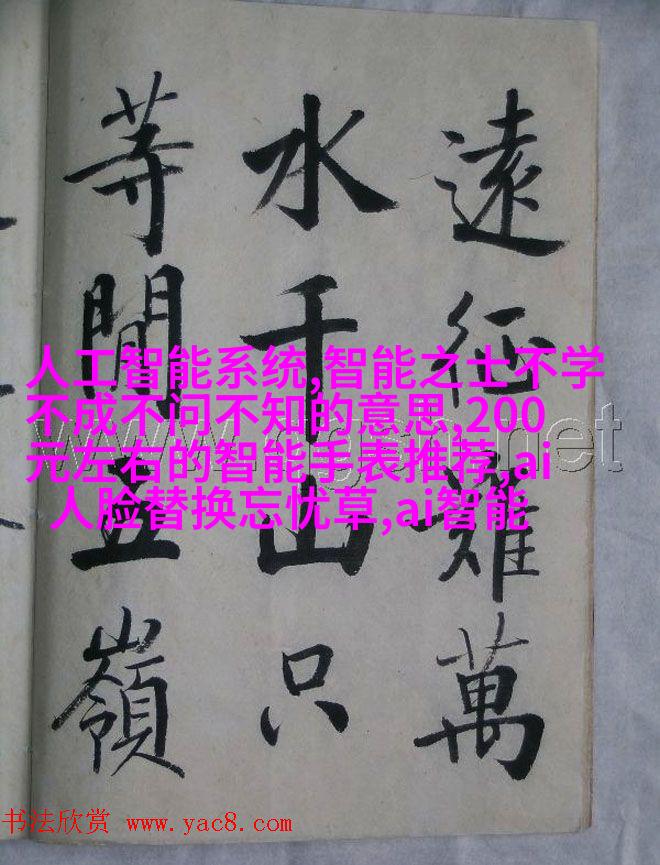 遠征難萬
水千山只
等閒五嶺
人工智能系统,智能之士不学
不成不问不知的意思,200
元左右的智能手表推荐,ai
人脸替换忘忧草,ai智能
书法欣赏 www.yac8.com